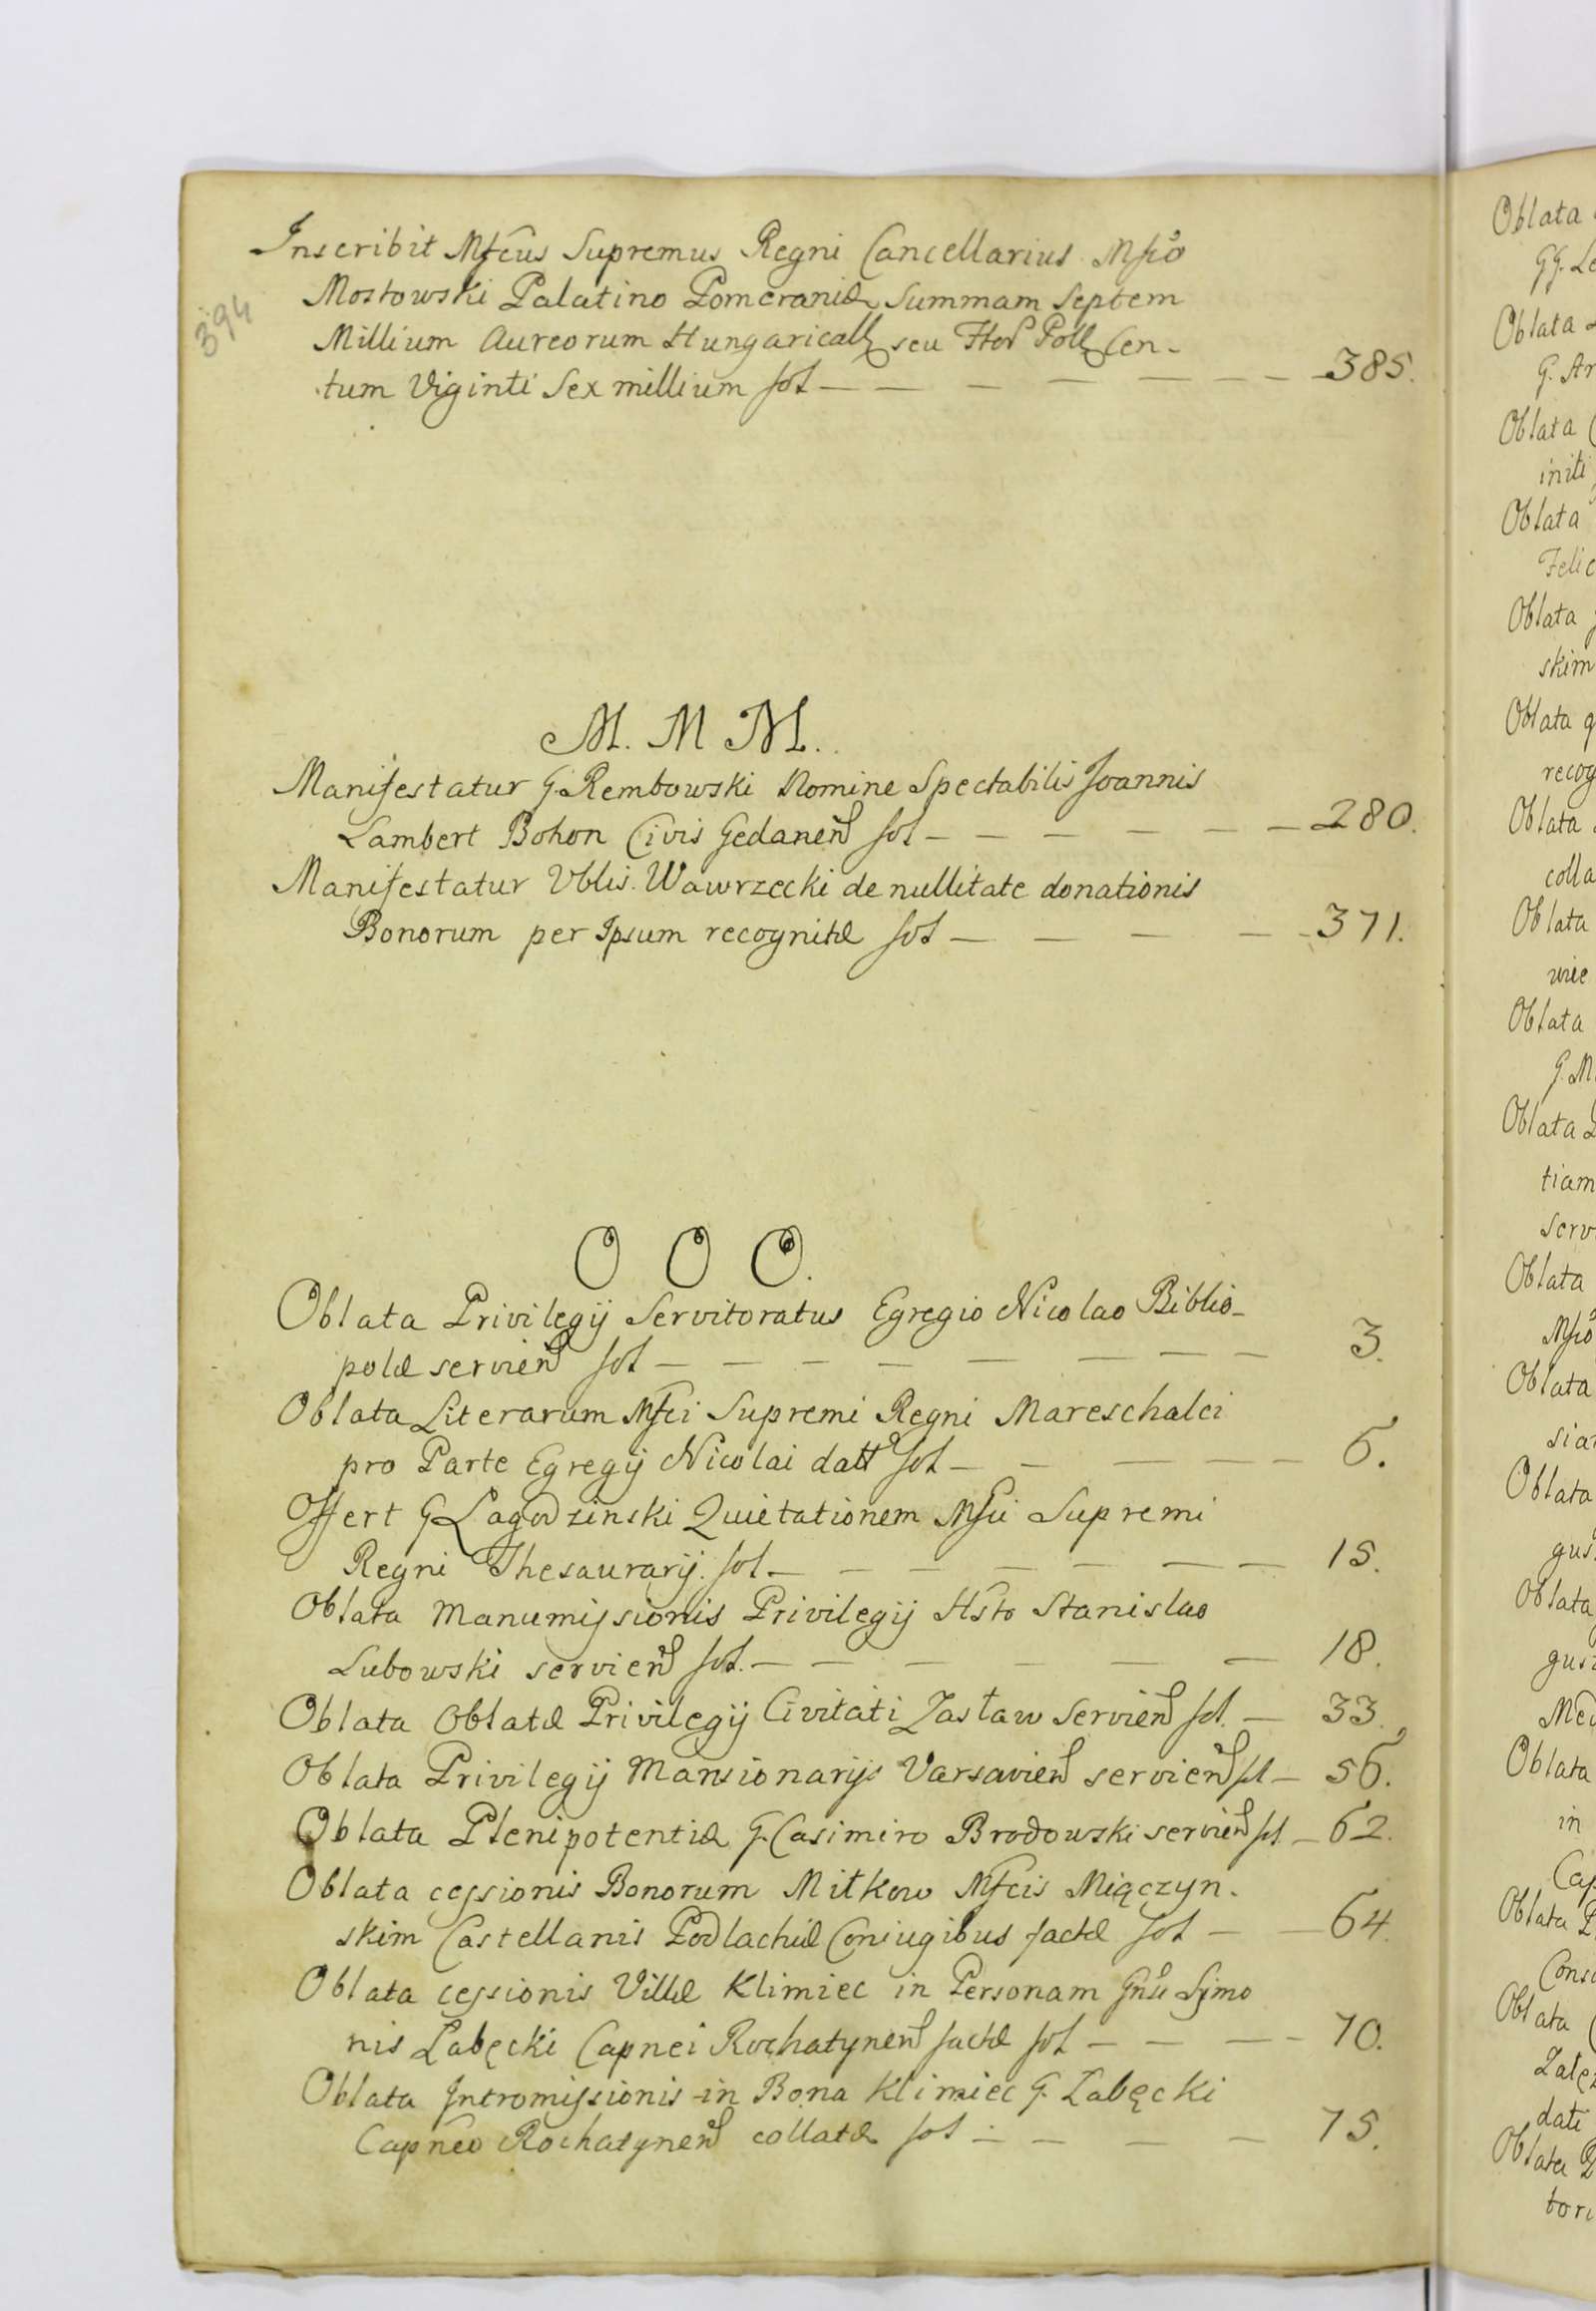 394
Inscribit Mfcus Supremus Regni Cancellarius Mfco
Mostowski Palatino Pomeraniæ Summam Septem
Millium Aureorum Hungaricall seu Flor Poll Cen-
tum Viginti Sex millium fol — — — — — — 385.
M. M M.
Manifestatur G. Rembowski Nomine Spectabilis Joannis
Lambert Bohon Civis Gedanen fol — — — — — — 280.
Manifestatur Vblis. Wawrzecki de nullitate donationis
Bonorum per Ipsum recognitæ fol — — — — 371.
O O O.
Oblata Privilegij Servitoratus Egregio Nicolao Biblio-
polæ servien fol — — — — — — — — 3.
Oblata Literarum Mfci Supremi Regni Mareschalci
pro Parte Egregij Nicolai datt fol — — — — — 6.
Offert G Lagodzinski Quietationem Mfci Supremi
Regni Thesaurarij. fol — — — — — — — 15.
Oblata Manumissionis Privilegij Hsto Stanislao
Lubowski servien fol. — — — — — — 18.
Oblata Oblatæ Privilegij Civitati Zasław servien fol. — 33.
Oblata Privilegij Mansionarijs Varsavien servien fol — 56.
Oblata Plenipotentiæ G. Casimiro Brodowski servien fol — 62.
Oblata cessionis Bonorum Mitkow Mfcis Miączyn-
skim Castellanis Podlachiæ Coniugibus factæ fol — — 64.
Oblata cessionis Villæ Klimiec in Personam Gnsi Symo
nis Łabęcki Capnei Rochatynen factæ fol — — — — 70.
Oblata Intromissionis in Bona Klimiec G. Łabęcki
Capneo Rochatynen collatæ fol — — — — 75.
Oblata
Oblata
Oblata
initi
Oblata
Felic
Oblata
skim
Oblata
recog
Oblata
colla
Oblata
wie
Oblata
G. M
Oblata
tiam
serv
Oblata
Mfco
Oblata
sia
Oblata
gus
Oblata
gus
Med
Oblata
in
Cap
Oblata
Cons
Oblata
dati
Oblata